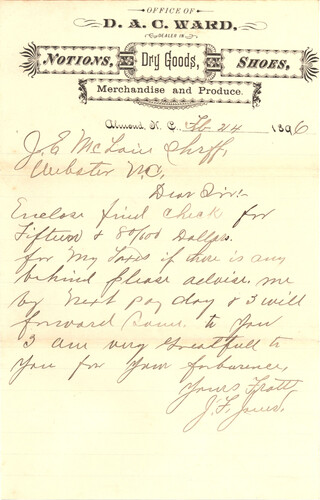 OFFICE OF
D. A. C. WARD,
DEALER IN
NOTIONS, Dry Goods, SHOES,
Merchandise and Produce.
Almond, N. C., Feb 24 1896
J. E. McLain Shrff,
Webster N.C.
Dear Sir:-
Enclose find check for
Fifteen & 80/100 Dollars.
for My Taxes if there is any
behind please advise me
by next pay day & I will
forward Same to You
I am very Greatfull to
You for Your forbarence,
Yours Trully
J. F. Jones.